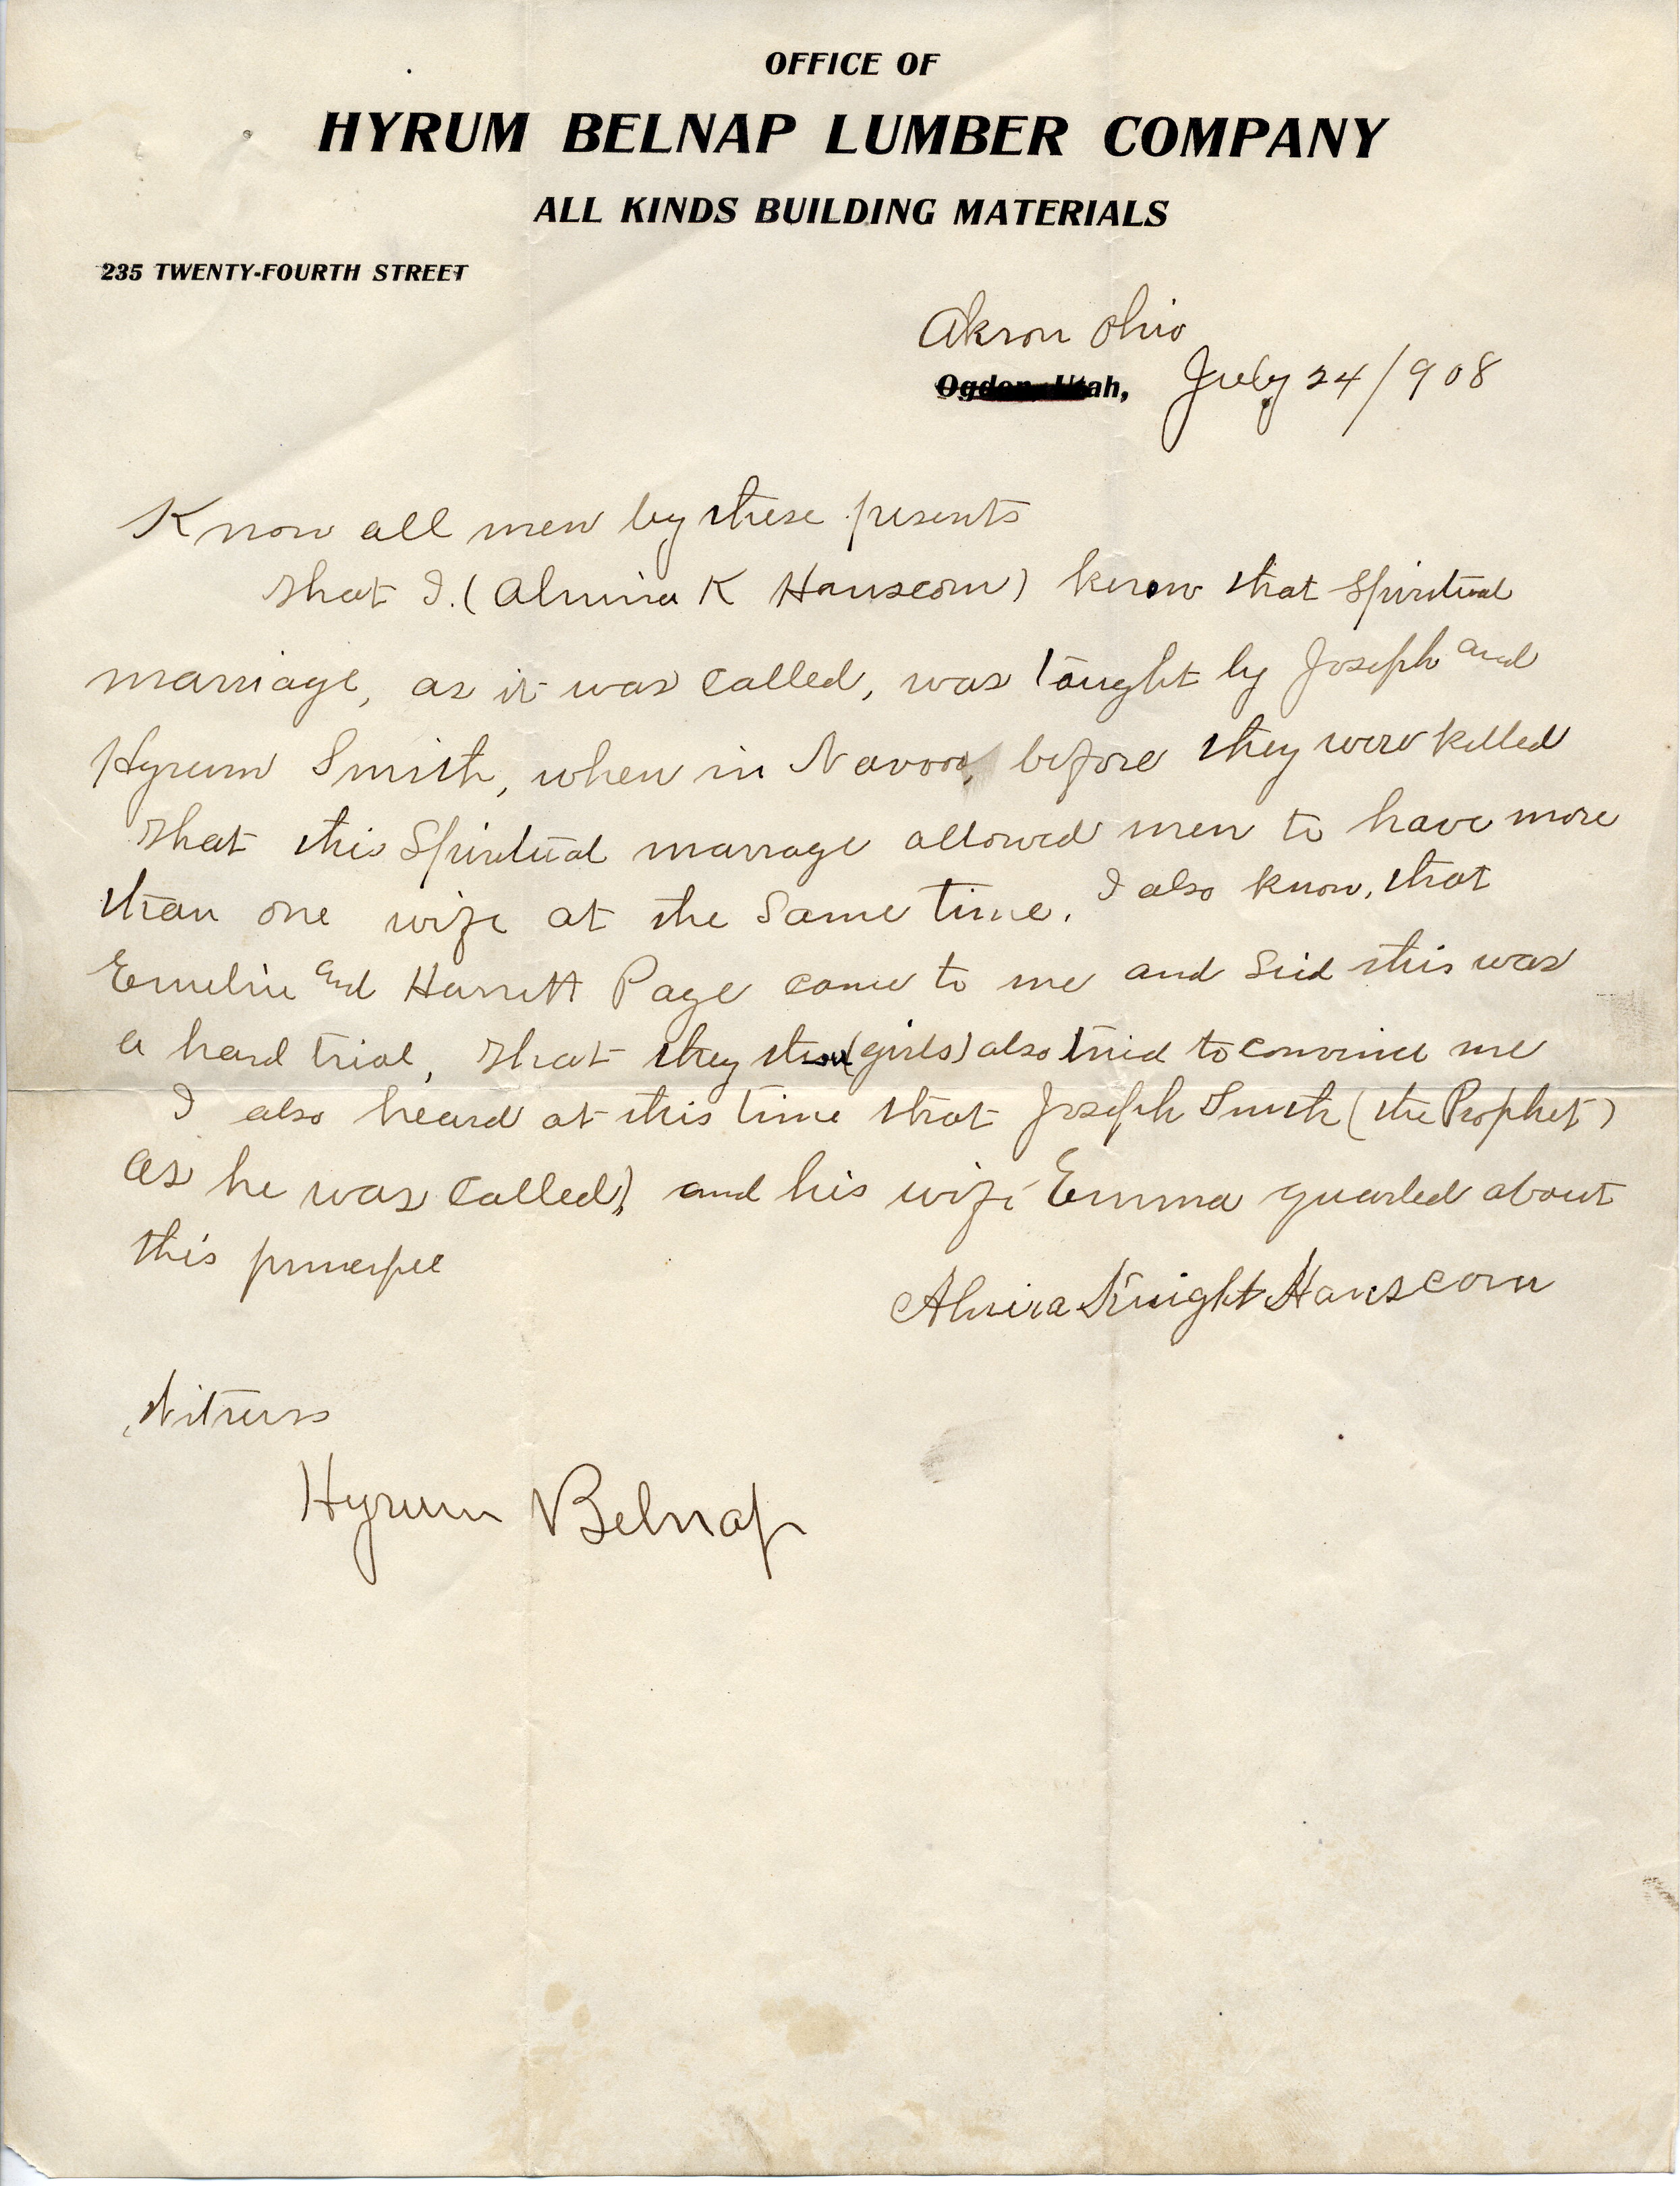 OFFICE OF
HYRUM BELNAP LUMBER COMPANY
ALL KINDS BUILDING MATERIALS
235 TWENTY-FOURTH STREET
Akron Ohio
Ogden, Utah, July 24/908
Know all men by these presents
that I. (Almira K Hanscom) know that Spiritual
marriage, as it was called, was taught by Joseph and
Hyrum Smith, when in Navoo, before they were killed
that this Spiritual marrage allowed men to have more
than one wife at the same time. I also know, that
Emeline and Harrett Page came to me and said this was
a hard trial, that they (girls) also tried to convince me
I also heard at this time that Joseph Smith (the Prophet)
as he was called) and his wife Emma quarled about
this principle
Almira Knight Hanscom
Witness
Hyrum Belnap